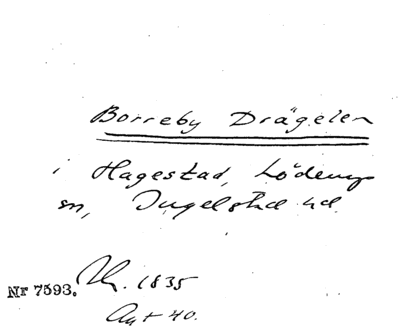 Borreby Drägelen
i Hagestad, Löderups
sn, Ingelstad hd.
Nr 7593. 1835
Ant 40.